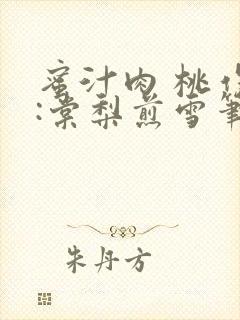 蜜汁肉桃
:棠梨煎雪
朱丹方